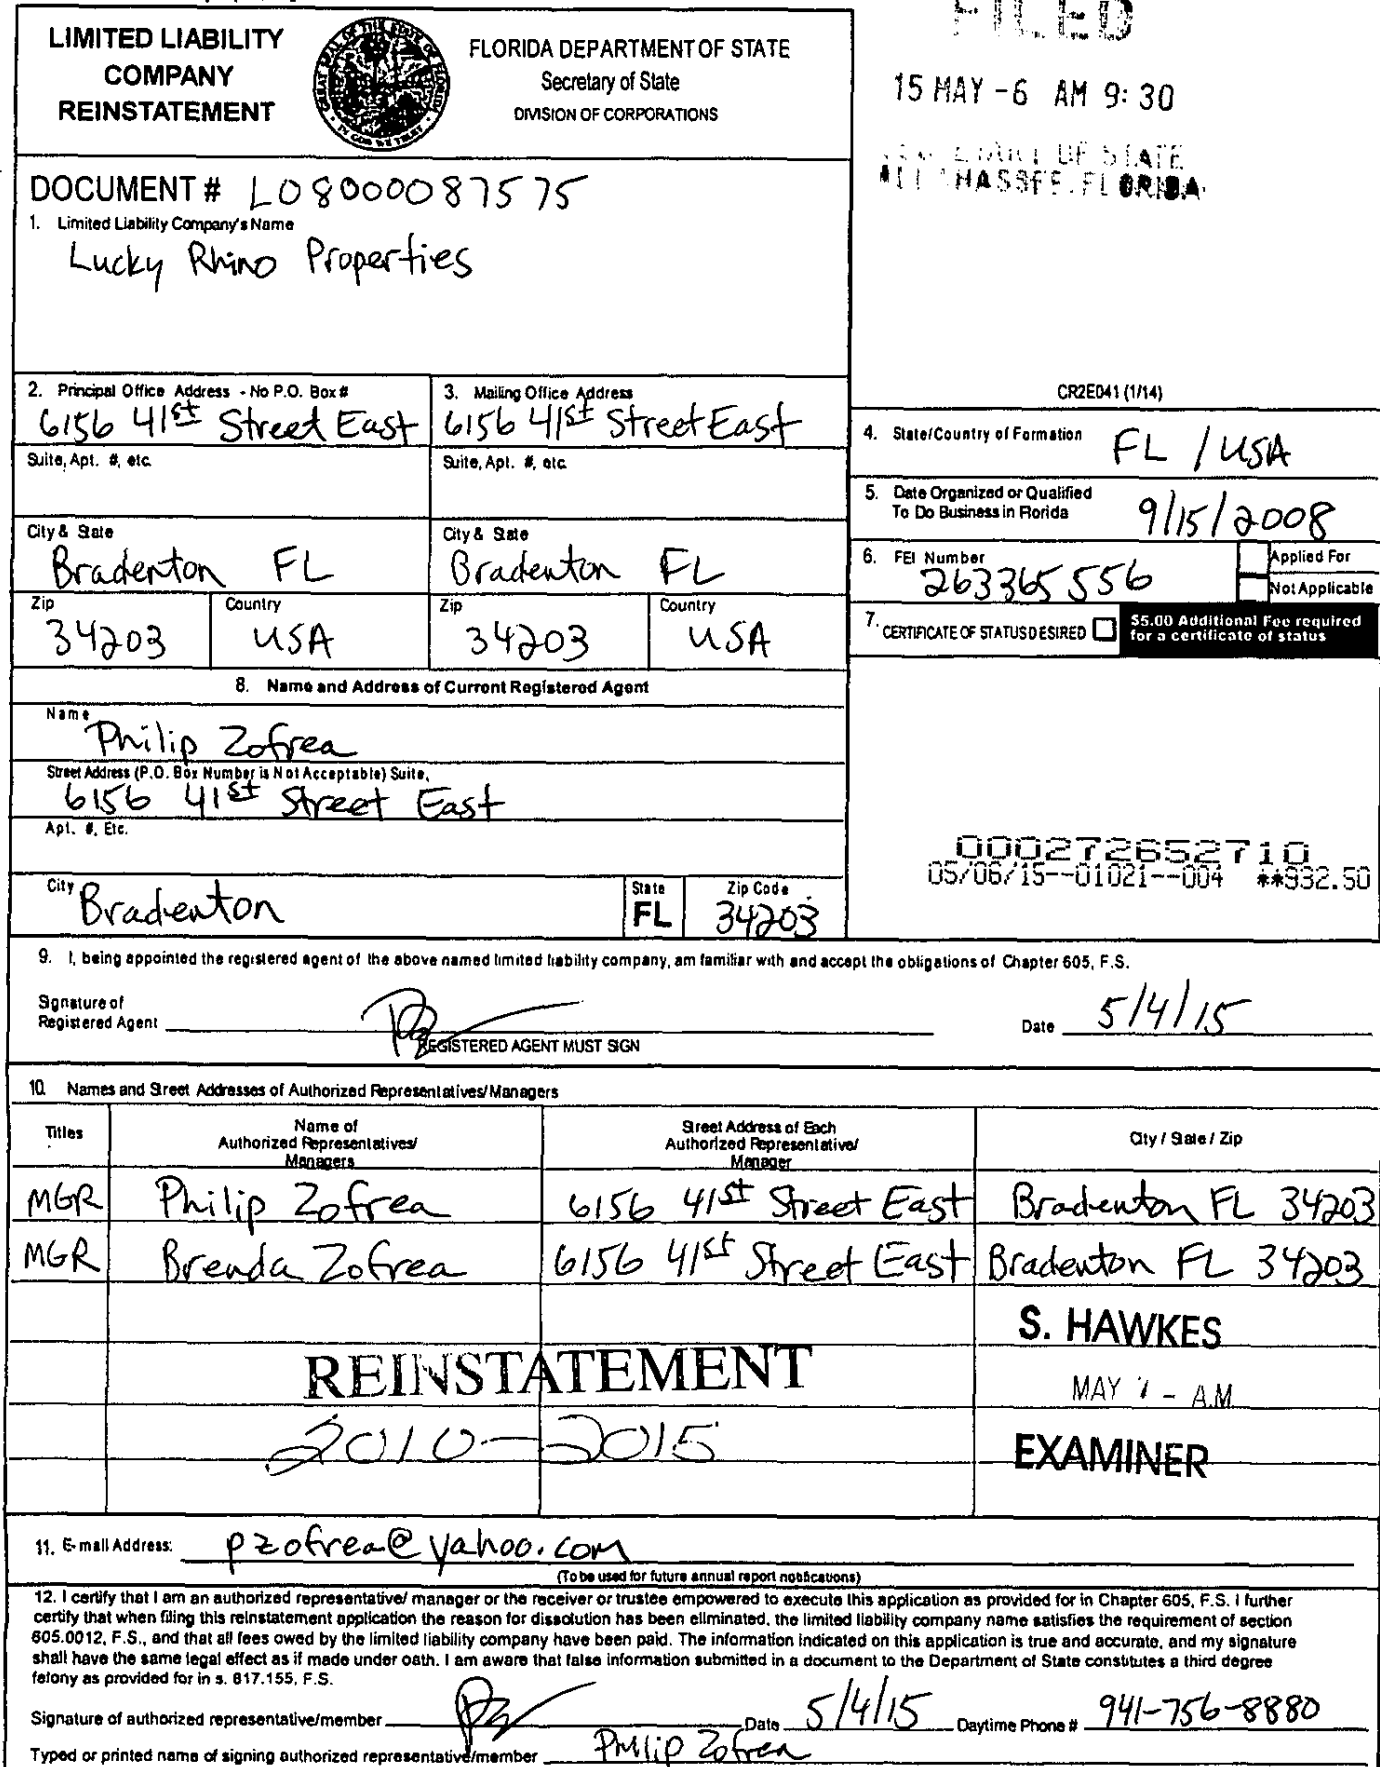 LIMITED LIABILITY
COMPANY
REINSTATEMENT
FLORIDA DEPARTMENT OF STATE
Secretary of State
DIVISION OF CORPORATIONS
FILED
15 MAY -6 AM 9:30
OF STATE
FLORIDA
DOCUMENT # L08000087575
1. Limited Liability Company's Name
Lucky Rhino Properties
2. Principal Office Address - No P.O. Box #
6156 41st Street East
3. Mailing Office Address
6156 41st Street East
Suite, Apt. #, etc.
Suite, Apt. #, etc.
City & State
Bradenton FL
City & State
Bradenton FL
Zip
34203
Country
USA
Zip
34203
Country
USA
CR2E041 (1/14)
4. State/Country of Formation FL / USA
5. Date Organized or Qualified
To Do Business in Florida 9/15/2008
6. FEI Number
263365556
Applied For
Not Applicable
7. CERTIFICATE OF STATUS DESIRED
$5.00 Additional Fee required
for a certificate of status
8. Name and Address of Current Registered Agent
Name
Philip Zofrea
Street Address (P.O. Box Number is Not Acceptable) Suite,
6156 41st Street East
Apt. #, Etc.
City Bradenton
State
FL
Zip Code
34203
000272652710
05/06/15--01021--004 **932.50
9. I, being appointed the registered agent of the above named limited liability company, am familiar with and accept the obligations of Chapter 605, F.S.
Signature of
Registered Agent
REGISTERED AGENT MUST SIGN
Date 5/4/15
10. Names and Street Addresses of Authorized Representatives/Managers
Titles
Name of
Authorized Representatives/
Managers
Street Address of Each
Authorized Representative/
Manager
City / State / Zip
MGR Philip Zofrea 6156 41st Street East Bradenton FL 34203
MGR Brenda Zofrea 6156 41st Street East Bradenton FL 34203
S. HAWKES
REINSTATEMENT
MAY 7 - A.M.
2010-2015
EXAMINER
11. E-mail Address: pzofrea@yahoo.com
(To be used for future annual report notifications)
12. I certify that I am an authorized representative/ manager or the receiver or trustee empowered to execute this application as provided for in Chapter 605, F.S. I further
certify that when filing this reinstatement application the reason for dissolution has been eliminated, the limited liability company name satisfies the requirement of section
605.0012, F.S., and that all fees owed by the limited liability company have been paid. The information indicated on this application is true and accurate, and my signature
shall have the same legal effect as if made under oath. I am aware that false information submitted in a document to the Department of State constitutes a third degree
felony as provided for in s. 817.155, F.S.
Signature of authorized representative/member
Date 5/4/15
Daytime Phone # 941-756-8880
Typed or printed name of signing authorized representative/member Philip Zofrea